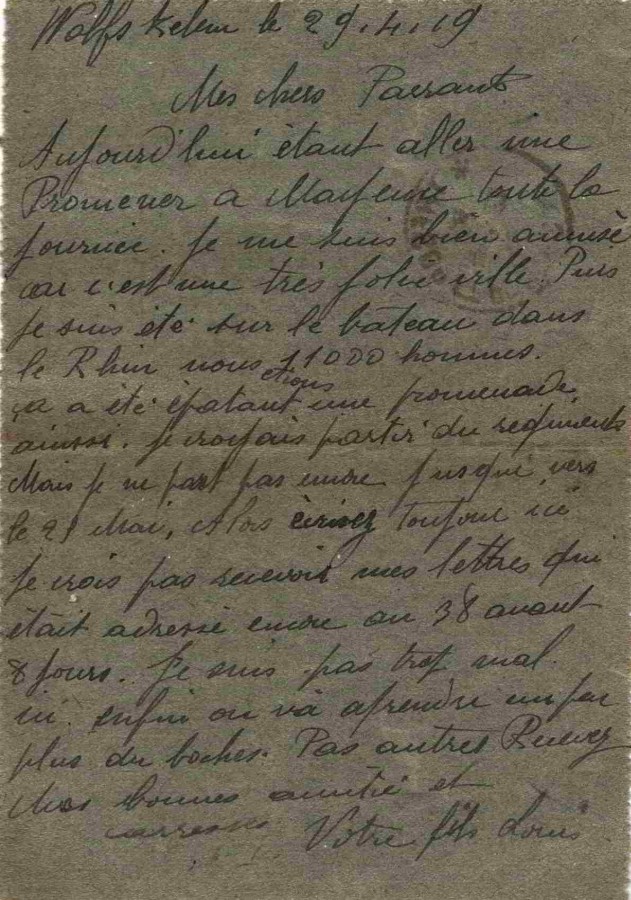 Wolfskelen le 29.4.19
Mes chers Parrants
Aujourd'hui étant aller une
Promener a Mayence toute la
journée. Je me suis bien amusé
car c'est une très jolie ville. Puis
je suis été sur le bateau dans
le Rhin nous étions 11000 hommes.
ça a été épatant une promenade
ainssi. je croyais partir du regiments
Mais je ne part pas encore jusqui vers
le 21 Mai, Alors écrivez toujour ici
je crois pas recevoir mes lettres qui
était adressé encore au 38 avant
8 jours. Je suis pas trop mal
ici enfin on va aprendre un peu
plus du boches. Pas autres Recevez
Mes bonnes amitié et
carresses Votre fils Louis